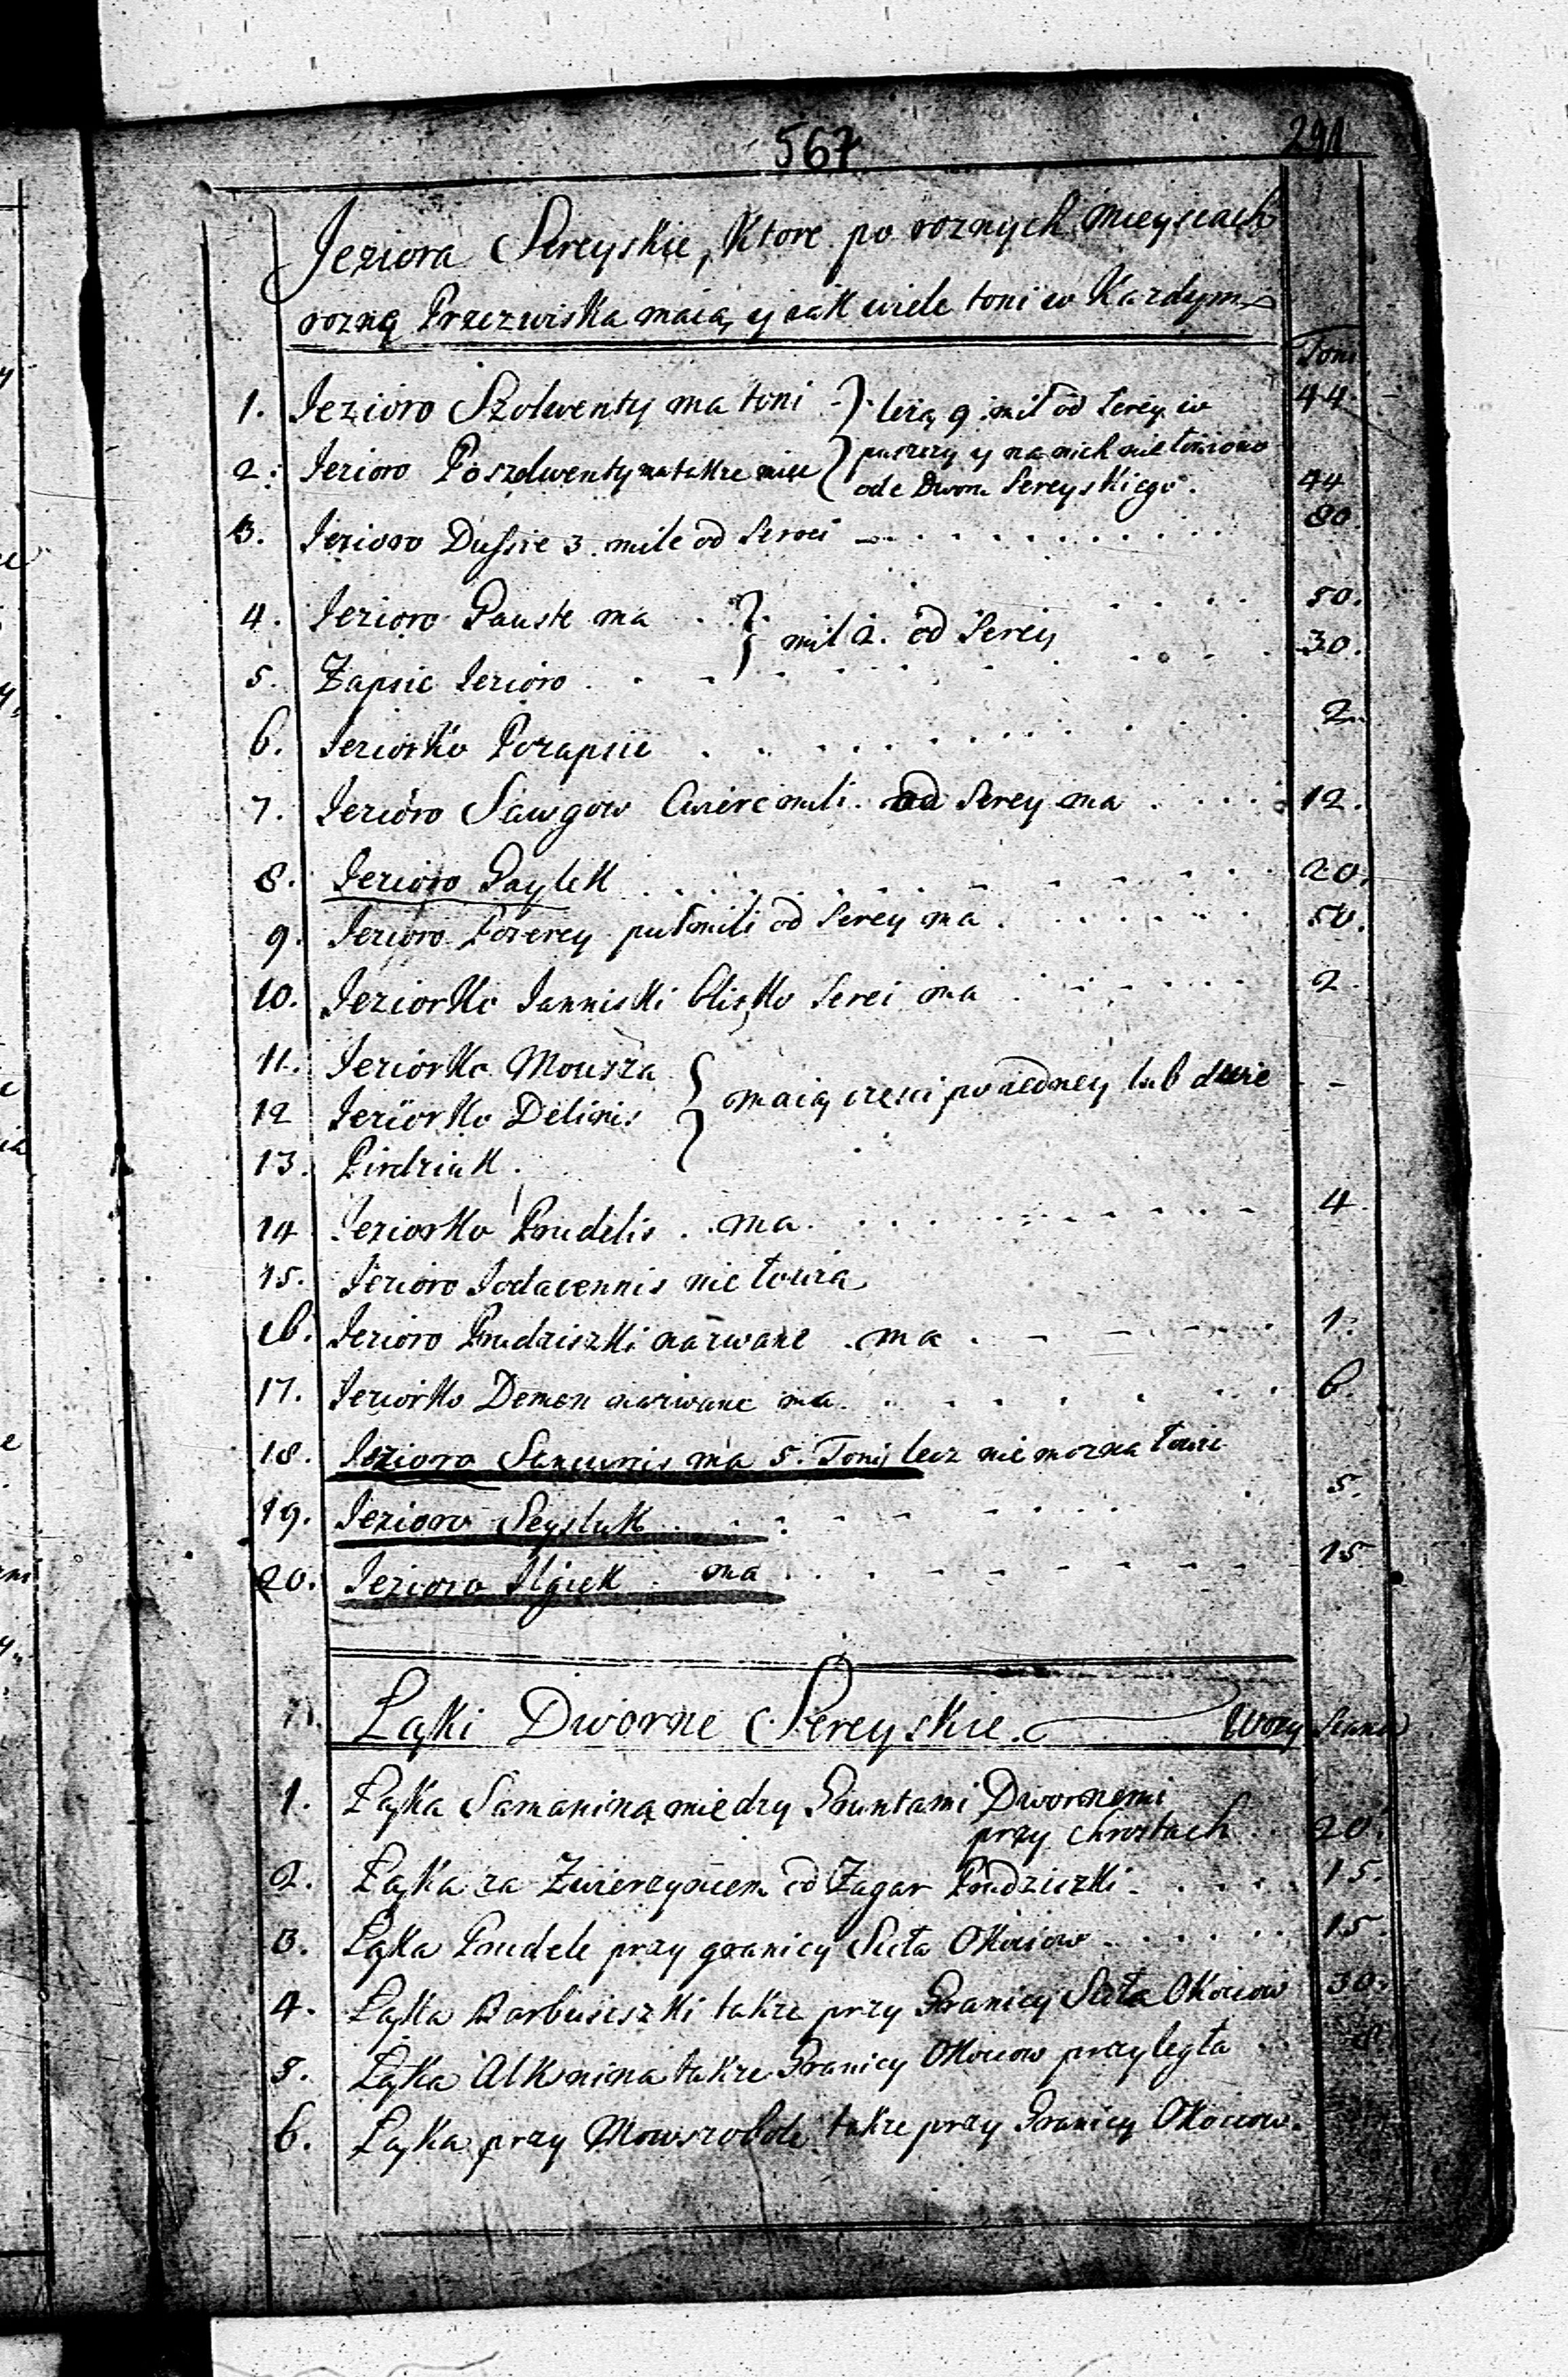 567
291
Jeziora Sereyskie, Ktore po roznych mieyscach
rozną Przezwiska maią, y iak wiele toni w Kazdym
Toni
1. Iezioro Szolwenty ma toni leżą 9 mil od Serey w 44
2. Iezioro Poszolwenty ma takze puszczy y na nich nie łowiono
ode Dwora Sereyskiego. 44
3. Iezioro Dussie 3. mile od Serei 80.
4. Iezioro Gauste ma 50.
mil 2. od Serey
5. Zapsie Iezioro 30.
6. Ieziorko Pozapsie 2.
7. Iezioro Sawgow Cwierc mili od Serey ma 12.
8. Iezioro Gaylek 20.
9. Iezioro Poserey puł mili od Serey ma 50.
10. Ieziorko Ianniski blisko Serei ma 2.
11. Ieziorko Mousza
maią czesci po iedney lub dwie
12 Ieziorko Delinis
13. Pirdziuk.
14 Ieziorko Prudelis ma 4.
15. Iezioro Iodacennis nie łowią
16. Iezioro Prudziszki nazwane ma 1.
17. Ieziorko Demen nazwane ma 6.
18. Iezioro ma 5. Toni lecz nie mozna łowic
19. Iezioro Seystuk 5.
20. Iezioro Ilgiek ma 15
Łąki Dworne Sereyskie. Wozy Siana
1. Łąka Samanina miedzy Gruntami Dwornemi
przy chrostach 20.
2. Łąka za Zwierzyncem od Zagar Prudziszki 15.
3. Łąka Prudele przy granicy Sioła Okociow 15.
4. Łąka Barbusiszki takze przy Granicy Sioła Okociow 30.
5. Łąka Alknina takze Granicy Okociow przyległa
6. Łąka przy Mowszobole takze przy Granicy Okociow.